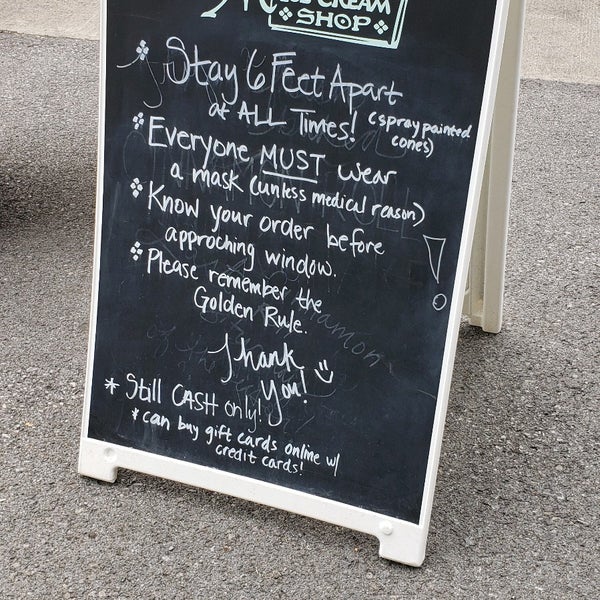 ICE CREAM
SHOP
Stay 6 Feet Apart
at ALL Times! (spray painted
cones)
Everyone MUST wear
a mask (unless medical reason)
Know your order before
approching window.
Please remember the
Golden Rule.
Thank
you!
* Still CASH only!
* can buy gift cards online w/
credit cards!